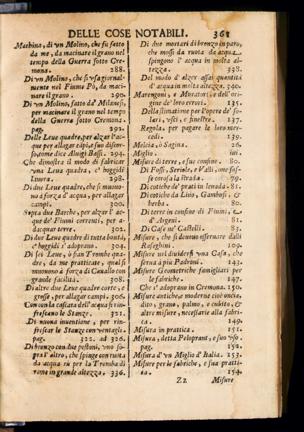 DELLE COSE NOTABILI. 361
Machina, di vn Molino, che fù fatto
da me, da macinare il grano in
tempo della Guerra fotto Cre-
mona. 288.
Di vn Molino, che fi vfa giornal-
mente nel Fiume Pò, da maci-
nare il grano. 290.
Di vn Molino, fatto da' Milanefi,
per macinare il grano nel tempo
della Guerra fotto Cremona.
pag. 291.
Delle Leue quadre, per alzar l'ac-
que per alzar l'acque, fuo difcor-
fo, come dice Aluigi Baffi. 294.
Che dimoftra il modo di fabricar
vna Leua quadra, c' hoggidì
298.
Di due Leue quadre, che fi muouo-
no à forza d'acqua, per allagar
campi. 300.
Sopra due Barche, per alzar l' ac-
que de' Fiumi correnti, per a-
dacquar terre. 302.
Di due Leue quadre di tutta bontà,
c' hoggidì s'adoprano. 304.
Di fei Leue, ò fian Trombe qua-
dre, da me pratticate, quali fi
muouono à forza di Cauallo con
grande facilità. 308.
Di altre due Leue quadre corte, e
groffe, per allagar campi. 306.
Come con la cafcata dell'acqua fi rin-
frefcano le Stanze. 321.
Di nuoua inuentione, per rin-
frefcar le Stanze con ventagli.
pag. 322. al 326.
Di bronzo con due peftoni, vno fo-
pra l' altro, che fpinge con ruota
da acqua sù per la Tromba di
roma in grande altezza. 336.
Di due mortari di bronzo in pario,
che moffi da ruota da acqua
fpingono l' acqua in molta al-
tezza. 338.
Del modo d' alzar affai quantità
d'acqua in molta altezza. 340.
Marangoni, e Muratori: e dell' ori-
gine de' loro errori. 135.
Della ftimatione per l'opere de' fo-
lari, vfci, e fineftre. 137.
Regola, per pagare le loro mer-
cedi. 139.
Melcia, ò Sagina. 26.
Miglio. iui.
Mifure di terre, e fue confine. 80.
Di Foffi, Seriole, e Valli, come fof-
fe ftata la ftrada. 79.
Di cotiche de' prati in lenada. 81.
Di cotiche da Lino, Gambofi, e
herba. 82.
Di terre in confine di Fiumi, e
d' Argeni. 81.
Di Cafe ne' Caftelli. 83.
Mifure, che fi deuono offeruare dalli
Rafeghini. 109.
Mifure nel diuiderfi vna Cafa, che
ferua à più Padroni. 143.
Mifure Geometriche famigliari per
le fabriche. 147.
Che s' adoprano in Cremona. 150.
Mifure antiche, moderne cioè oncie,
dito, grano, palmo, e cubito, &
altre mifure, neceffarie alla fabri-
ca. 149.
Mifura in prattica. 151.
Mifura, detta Peloprant, e fuo vfo.
pag. 150.
Mifura d' vn Miglio d' Italia. 153.
Mifure per le fabriche, e fua pratti-
ca. 154.
Zz Mifure